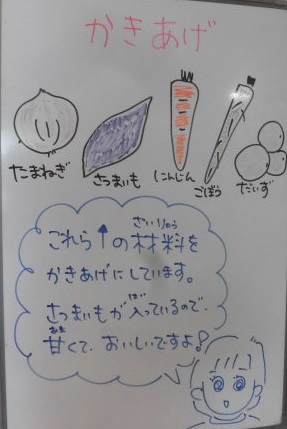 かきあげ
たまねぎ さつまいも にんじん ごぼう だいず
これら↑の材料を
ざいりょう
かきあげにしています。
さつまいもが入っているので、
はい
甘くて、おいしいですよ!
あま